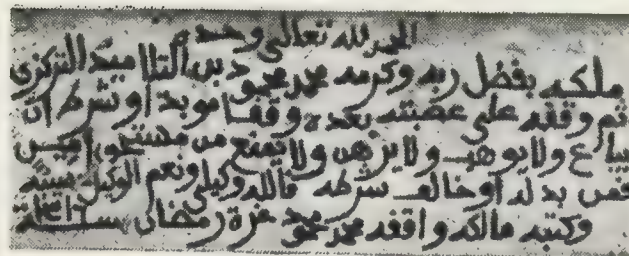 الحمد لله تعالى وحده
ملكه بفضل ربه وكرمه محمد محمود بن التلاميد التركزي
ثم وقفه على عصبته بعده وقفا مؤبدا وشرط ان
يباع ولا يوهب ولا يرهن ولا يمنع من مستحق
فمن بدله او خالف شرطه فالله وكيلي ونعم الوكيل
وكتبه مالكه واقفه محمد محمود غرة رمضان سنة ١٣١٦